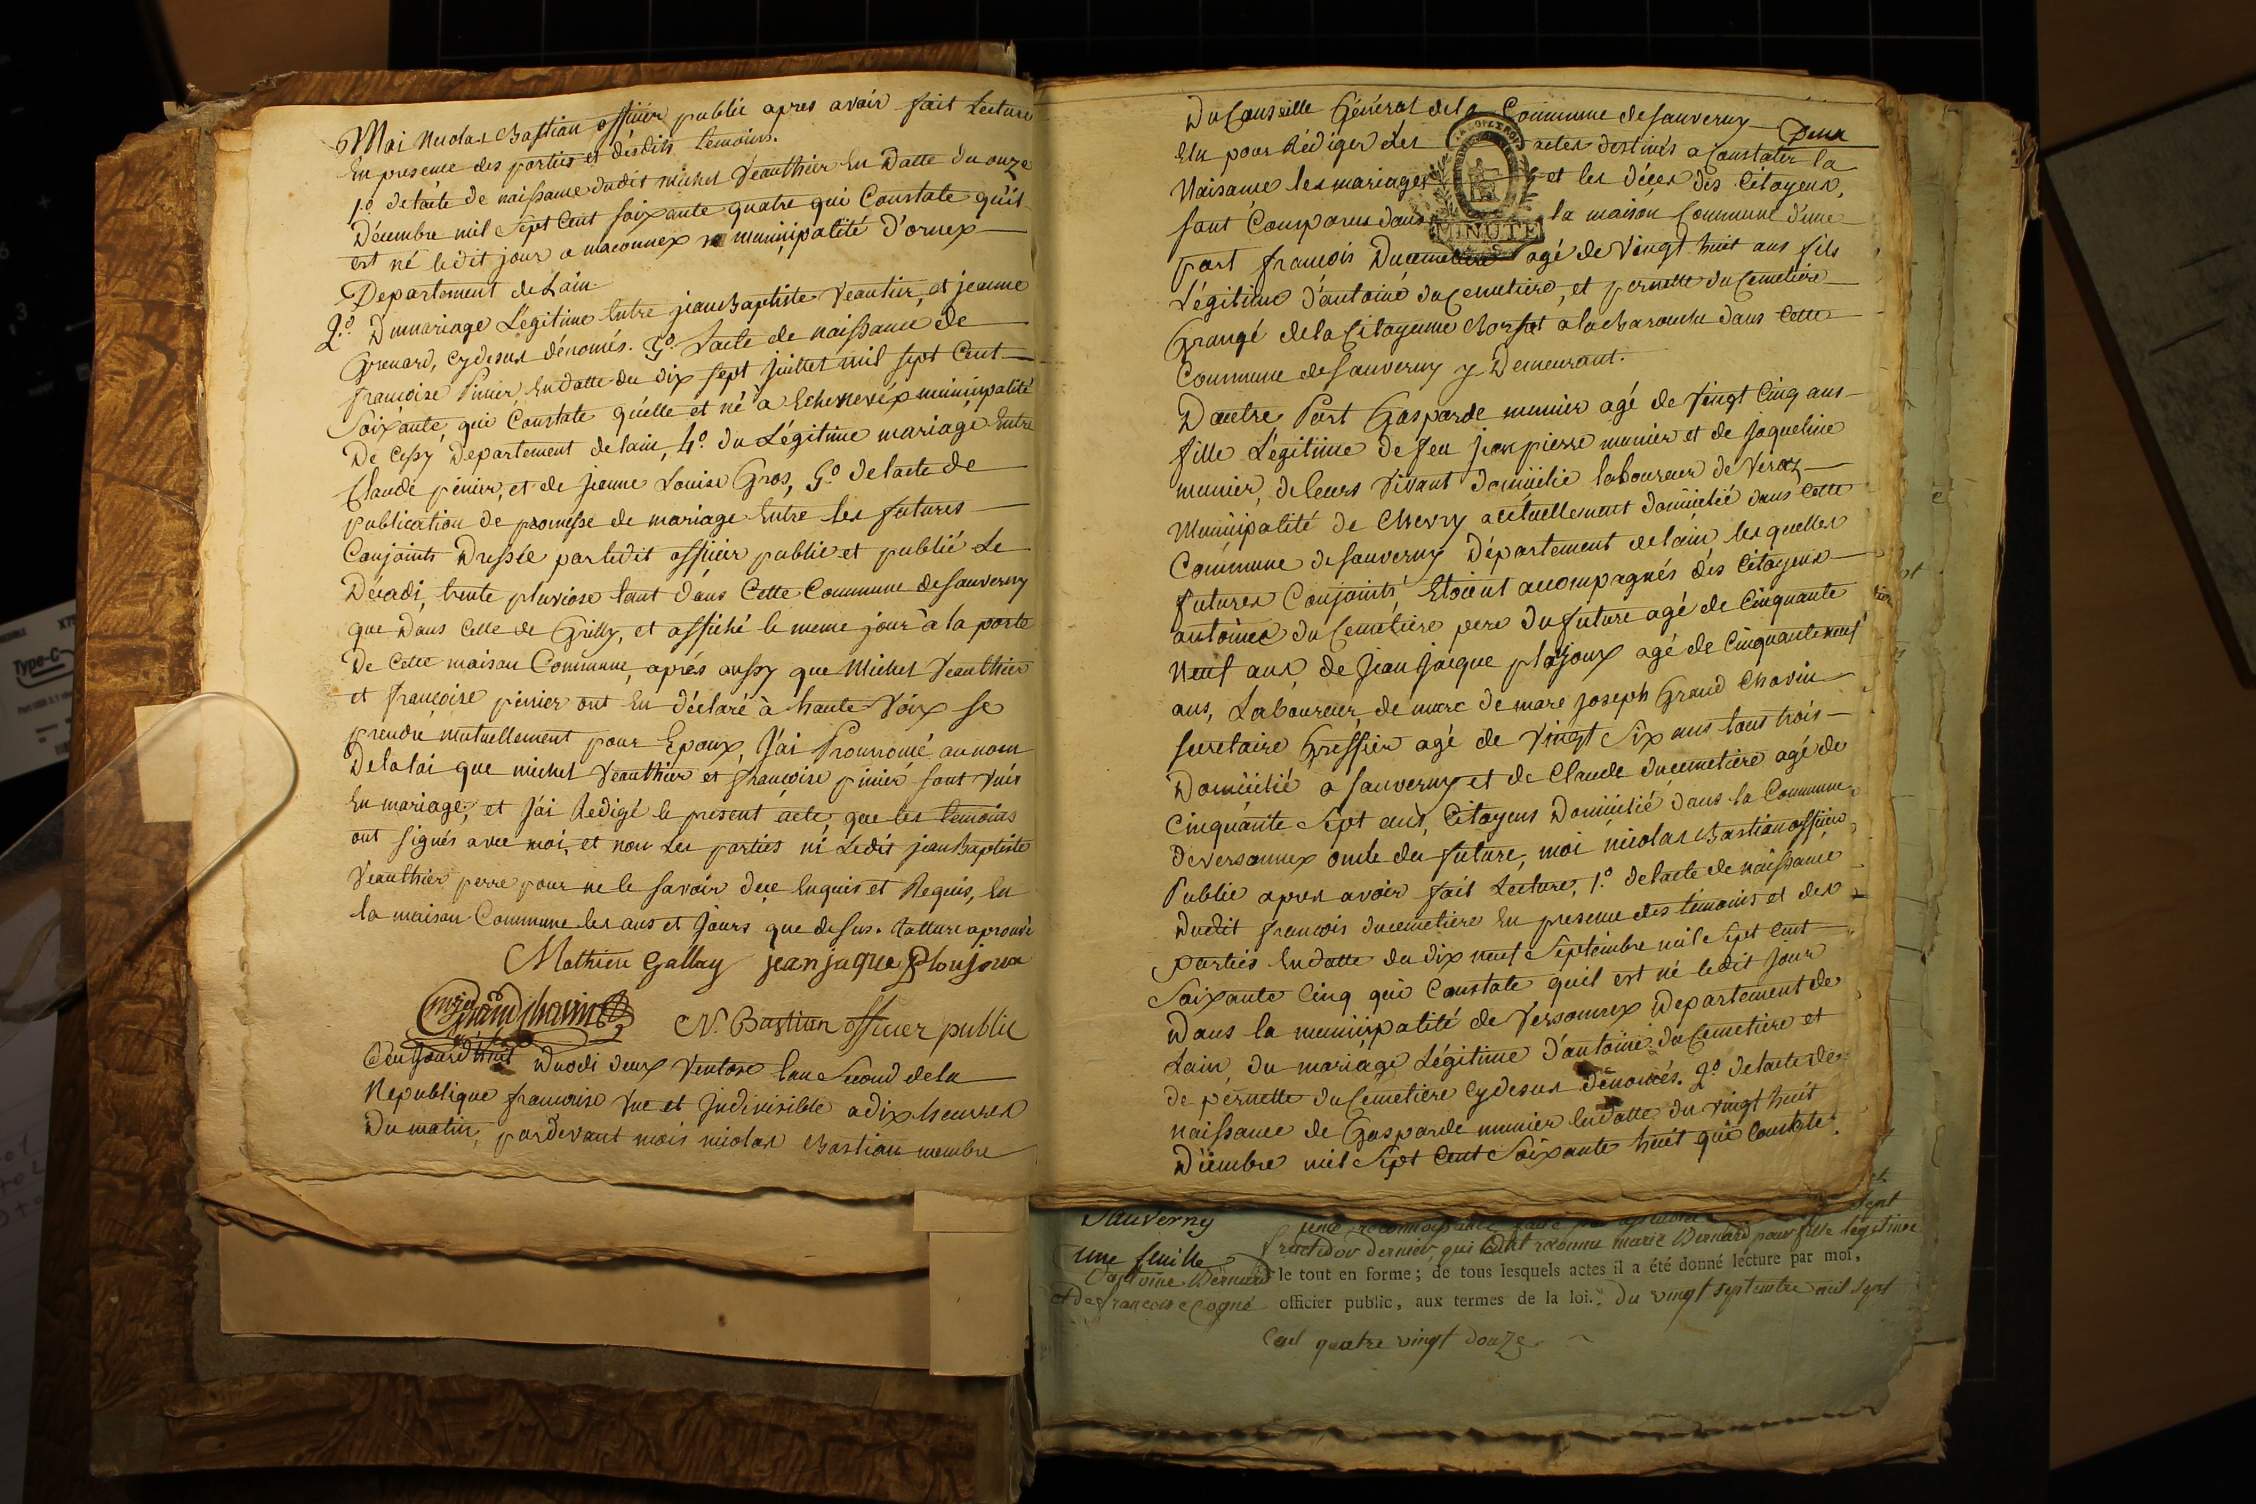 Moi Nicolas Bastian officier public apres avoir fait Lecture
En presence des parties et desdits temoins.
1.º de l'acte de naissance dudit michel Veauthier En Datte du onze
Décembre mil Sept Cent soixante quatre qui Constate qu'il
est né ledit jour a maconnex municipalité d'ornex
Departement de Lain
2.º Du mariage Légitime Entre jean Baptiste Veautier, et jeanne
Grenard, cy desus dénomés. 3.º Lacte de naissance de
francoise Pinier, En datte du dix sept juillet mil sept Cent
Soixante, qui Constate quelle et né a Echenevéx municipalité
De Cessy Departement de lain, 4.º du Légitime mariage Entre
Claude pénier, et de jeanne Louise Gros, 5.º de lacte de
publication de promesse de mariage Entre les futures
Conjoints Dressée par ledit officier public et publié Le
Décadi, trente pluviose tant dans Cette Commune de Sauverny
que Dans Celle de Grilly, et affiché le meme jour à la porte
De Cette maison Commune, aprés aussy que Michel Veauthier
et francoise pénier ont Eu déclaré à haute Voix se
prendre mutuellement pour Epoux, J'ai Prononcé au nom
De la loi que michel Veauthier et francoise pinier sont Unis
En mariage; et J'ai Redigé le present acte, que les temoins
ont signés avec moi, et non Les parties ni Ledit jean Baptiste
Veauthier perre pour ne le savoir de ce Enquis et Requis, En
la maison Commune les ans et jours que desus. Ratture aprouvé
Mathieu Gallay jean jaque Ploujoux
Grand chavin
N. Bastian officier public
Cejourdhuit Duodi deux Ventose lan Second de la
Republique francoise Une et Indivisible a dix heurres
Du matin, pardevant mois nicolas Bastian membre
Du Conseille Général de la Commune de Sauverny
Deux
Elu pour Rédiger Les actes destinés a Constater la
Naisance les mariages et les déces des Citoyens,
MINUTE
sont Comparus dans la maison Commune d'une
part francois Ducemetiere agé de Vingt huit ans fils
Légitime d'antoine du Cemetiere, et pernette du Cemetiere
Grangé de la Citoyenne a la dans Cette
Commune de Sauverny y Demeurant.
Dautre Part Gasparde munier agé de Vingt Cinq ans
fille Légitime de feu jean pierre munier et de Jaqueline
munier, de leurs Vivant domicilié laboureur de Veraz
Municipalité de Chevry actuellement domicilié dans Cette
Commune de Sauverny Département de lain les quelles
futures Conjoints Etoient acompagnés des Citoyens
antoine du Cemetiere pere du future agé de Cinquante
Neuf ans, de jean jacque plojoux agé de Cinquante neuf
ans, Laboureur, de marc de marc joseph Grand Chavin
secretaire Greffier agé de Vingt Six ans tous trois
Domicilié a Sauverny et de Claude ducemetiere agé de
Cinquante Sept ans, Citoyens Domicilié dans la Commune
de Versonnex oncle du future, moi nicolas Bastian officier
Public apres avoir fait Lecture, 1.º de lacte de naissance
Dudit francois ducemetiere En presence des temoins et des
parties En datte du dix neuf Septembre mil Sept Cent
Soixante Cinq qui Constate quil est né ledit jour
Dans la municipalité de Versonnex Departement de
Lain, du mariage Légitime d'antoine du Cemetiere et
de pernette du Cemetiere cy desus dénomés. 2.º de lacte de
naissance de Gasparde munier En datte du Vingt huit
Décembre mil Sept Cent Soixante huit qui Constate
Sept
Sauverny
une reconnoissance
fructidor dernier, qui reconnu marie Bernard pour fille légitime
Une feuille
D'antoine Bernard le tout en forme; de tous lesquels actes il a été donné lecture par moi,
et de francoise Cogné officier public, aux termes de la loi. Du vingt septembre mil sept
Cent quatre vingt douze
Type-C